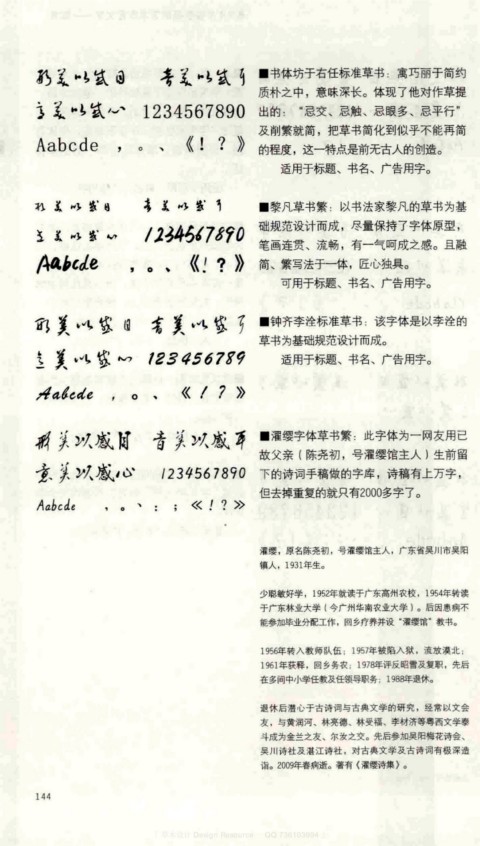 形美以感目 音美以感耳
意美以感心 1234567890
Aabcde ，。、《！？》
■书体坊于右任标准草书：寓巧丽于简约
质朴之中，意味深长。体现了他对作草提
出的：“忌交、忌触、忌眼多、忌平行”
及削繁就简，把草书简化到似乎不能再简
的程度，这一特点是前无古人的创造。
适用于标题、书名、广告用字。
形美以感目 音美以感耳
意美以感心 1234567890
Aabcde ，。、《！？》
■黎凡草书繁：以书法家黎凡的草书为基
础规范设计而成，尽量保持了字体原型，
笔画连贯、流畅，有一气呵成之感。且融
简、繁写法于一体，匠心独具。
可用于标题、书名、广告用字。
形美以感目 音美以感耳
意美以感心 123456789
Aabcde ，。、《！？》
■钟齐李洤标准草书：该字体是以李洤的
草书为基础规范设计而成。
适用于标题、书名、广告用字。
形美以感目 音美以感耳
意美以感心 1234567890
Aabcde ，。、：；《！？》
■濯缨字体草书繁：此字体为一网友用已
故父亲（陈尧初，号濯缨馆主人）生前留
下的诗词手稿做的字库，诗稿有上万字，
但去掉重复的就只有2000多字了。
濯缨，原名陈尧初，号濯缨馆主人，广东省吴川市吴阳
镇人，1931年生。
少聪敏好学，1952年就读于广东高州农校，1954年转读
于广东林业大学（今广州华南农业大学）。后因患病不
能参加毕业分配工作，回乡疗养并设“濯缨馆”教书。
1956年转入教师队伍；1957年被陷入狱，流放漠北；
1961年获释，回乡务农；1978年评反昭雪及复职，先后
在多间中小学任教及任领导职务；1988年退休。
退休后潜心于古诗词与古典文学的研究，经常以文会
友，与黄润河、林亮德、林受福、李材济等粤西文学泰
斗成为金兰之友、尔汝之交。先后参加吴阳梅花诗会、
吴川诗社及湛江诗社，对古典文学及古诗词有极深造
诣。2009年春病逝。著有《濯缨诗集》。
144